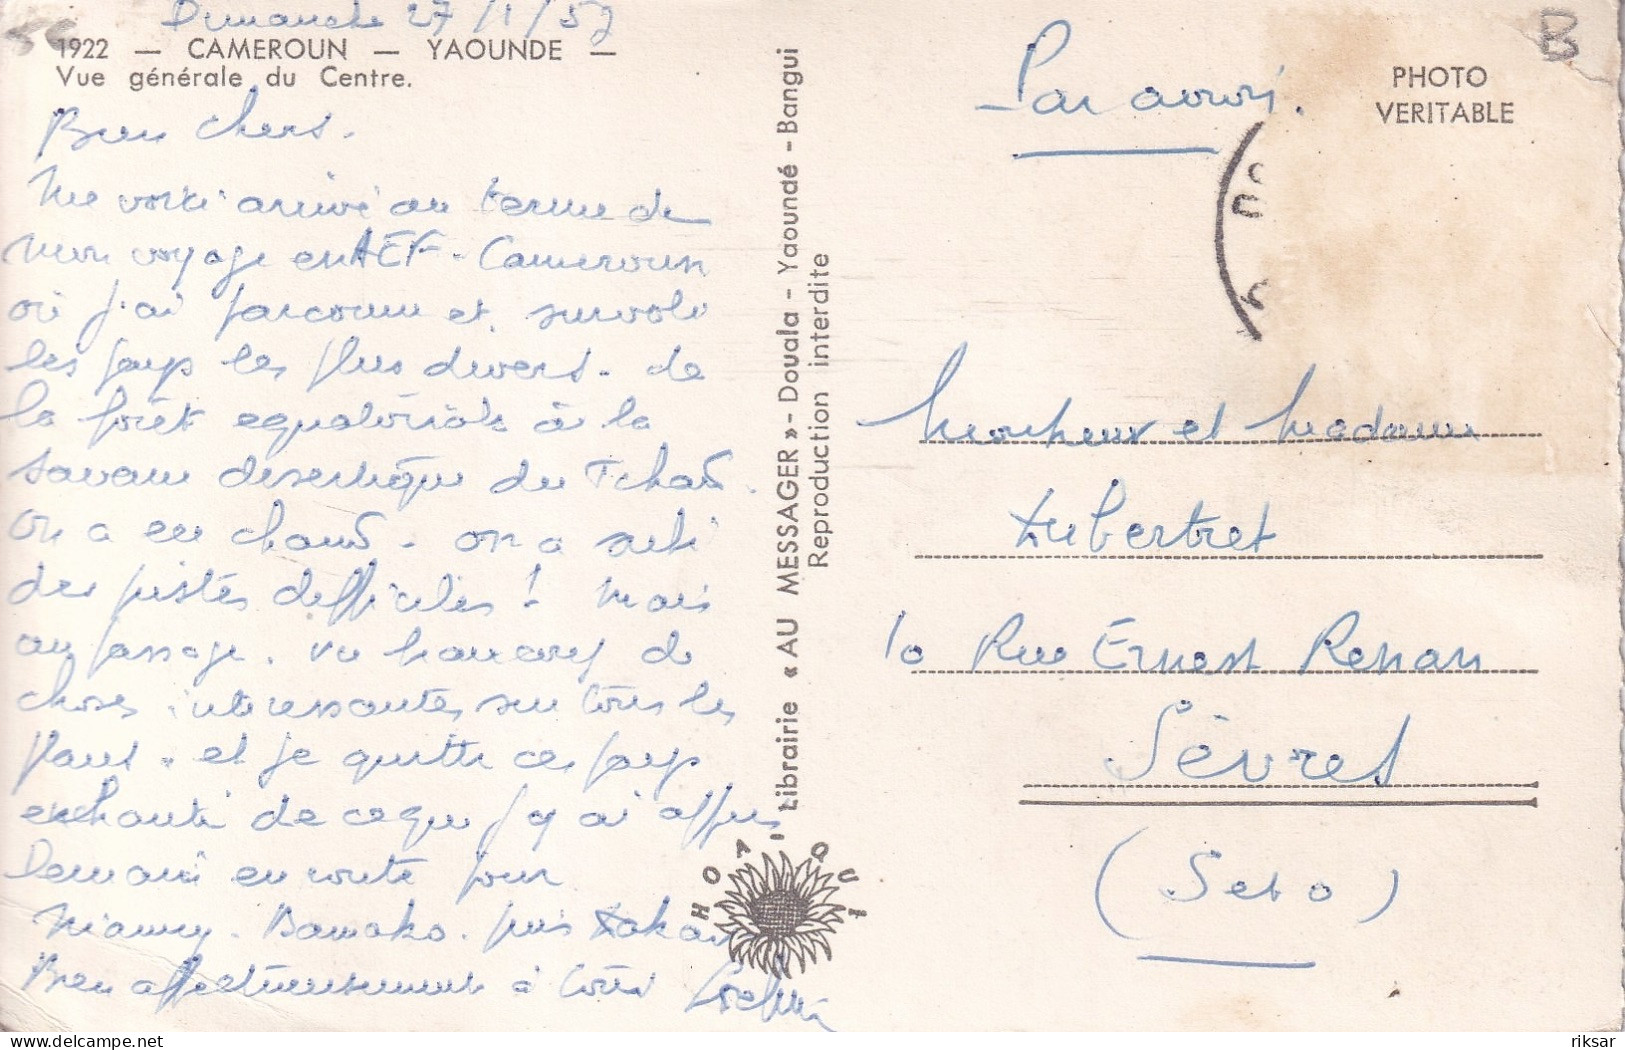 Dimanche 27/1/57
1922 — CAMEROUN — YAOUNDE —
Vue générale du Centre.
Bien chers.
Me voici arrivé au terme de
mon voyage en AEF - Cameroun
où j'ai parcouru et survolé
les pays les plus divers - de
la forêt equatoriale à la
savane desertique du Tchad.
On a eu chaud - on a suivi
des pistes difficiles ! Mais
au passage, vu beaucoup de
choses intéressantes sur tous les
plans - et je quitte ce pays
enchanté de ce que j'y ai appris
Demain en route pour
Niamey - Bamako - puis Dakar
Bien affectueusement à tous
Librairie « AU MESSAGER » - Douala - Yaoundé - Bangui
Reproduction interdite
HOA-QUI
Par avion.
PHOTO
VERITABLE
B
Monsieur et Madame
Aubertret
10 Rue Ernest Renan
Sèvres
(S et O)
riksar